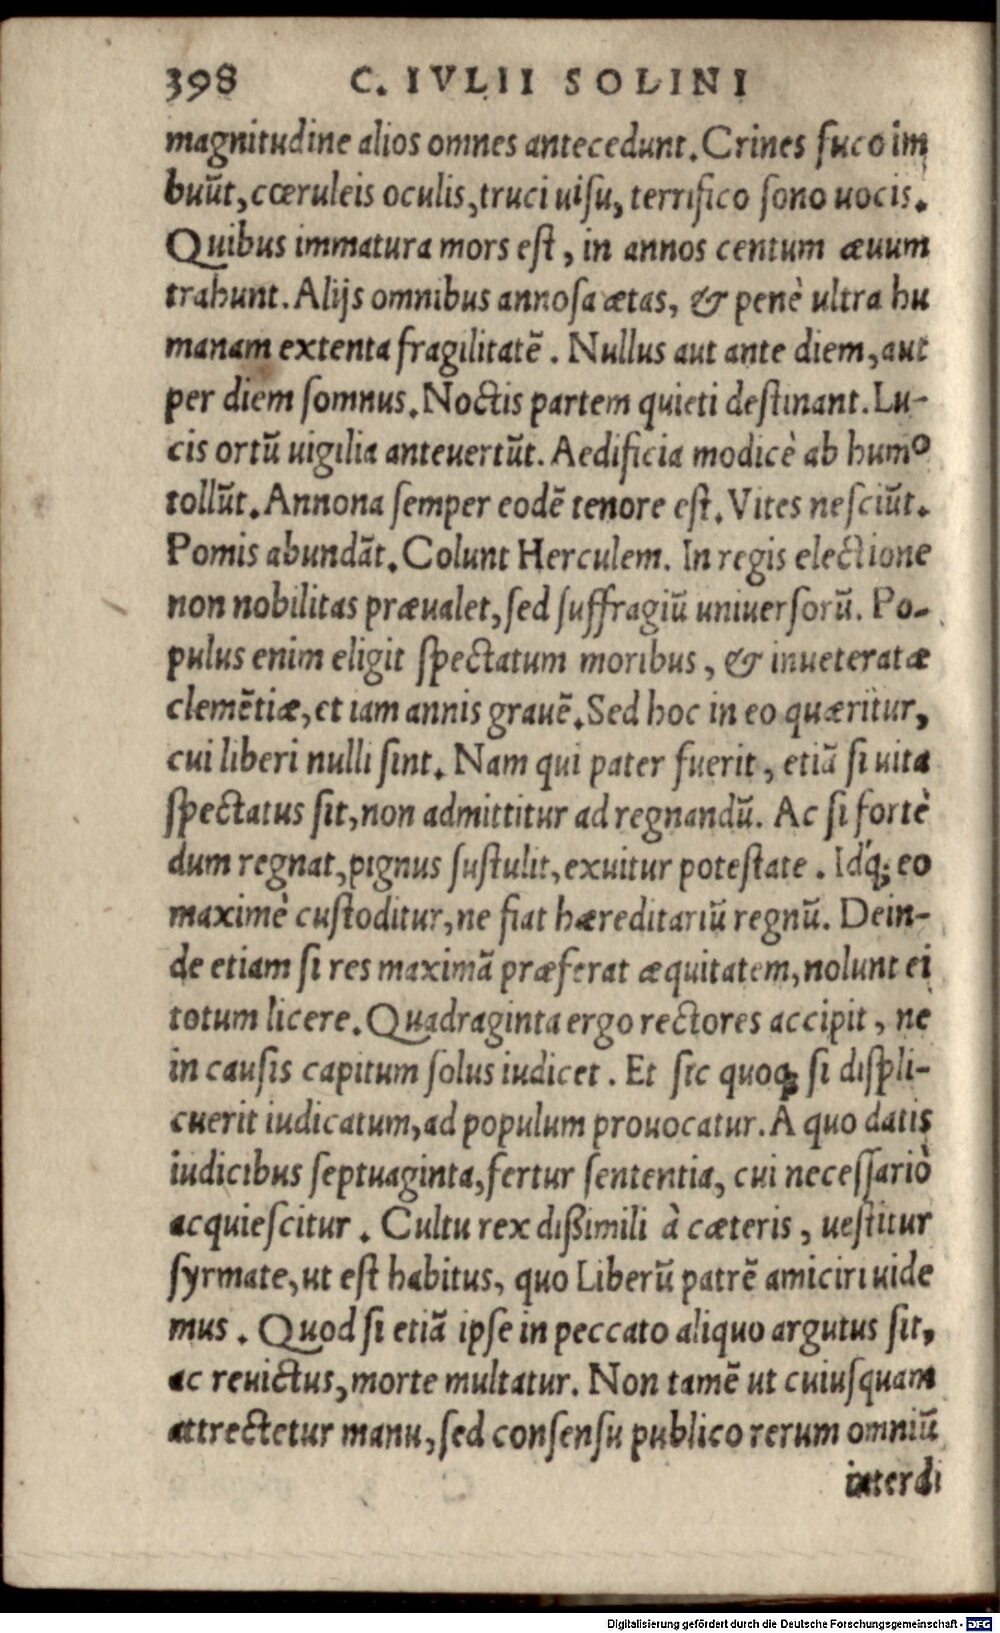 398 C. IVLII SOLINI
magnitudine alios omnes antecedunt. Crines fuco im
buūt, cœruleis oculis, truci uisu, terrifico sono uocis.
Quibus immatura mors est, in annos centum æuum
trahunt. Alijs omnibus annosa ætas, & penè ultra hu
manam extenta fragilitatē. Nullus aut ante diem, aut
per diem somnus. Noctis partem quieti destinant. Lu-
cis ortū uigilia anteuertūt. Aedificia modicè ab humo
tollūt. Annona semper eodē tenore est. Vites nesciūt.
Pomis abundāt. Colunt Herculem. In regis electione
non nobilitas præualet, sed suffragiū uniuersorū. Po-
pulus enim eligit spectatum moribus, & inueteratæ
clemētiæ, et iam annis grauē. Sed hoc in eo quæritur,
cui liberi nulli sint. Nam qui pater fuerit, etiā si uita
spectatus sit, non admittitur ad regnandū. Ac si fortè
dum regnat, pignus sustulit, exuitur potestate. Idq́; eo
maximè custoditur, ne fiat hæreditariū regnū. Dein-
de etiam si res maximā præferat æquitatem, nolunt ei
totum licere. Quadraginta ergo rectores accipit, ne
in causis capitum solus iudicet. Et sic quoq; si displi-
cuerit iudicatum, ad populum prouocatur. A quo datis
iudicibus septuaginta, fertur sententia, cui necessariò
acquiescitur. Cultu rex dißimili à cæteris, uestitur
syrmate, ut est habitus, quo Liberū patrē amiciri uide
mus. Quod si etiā ipse in peccato aliquo argutus sit,
ac reuictus, morte multatur. Non tamē ut cuiusquam
attrectetur manu, sed consensu publico rerum omniū
interdi
Digitalisierung gefördert durch die Deutsche Forschungsgemeinschaft - DFG